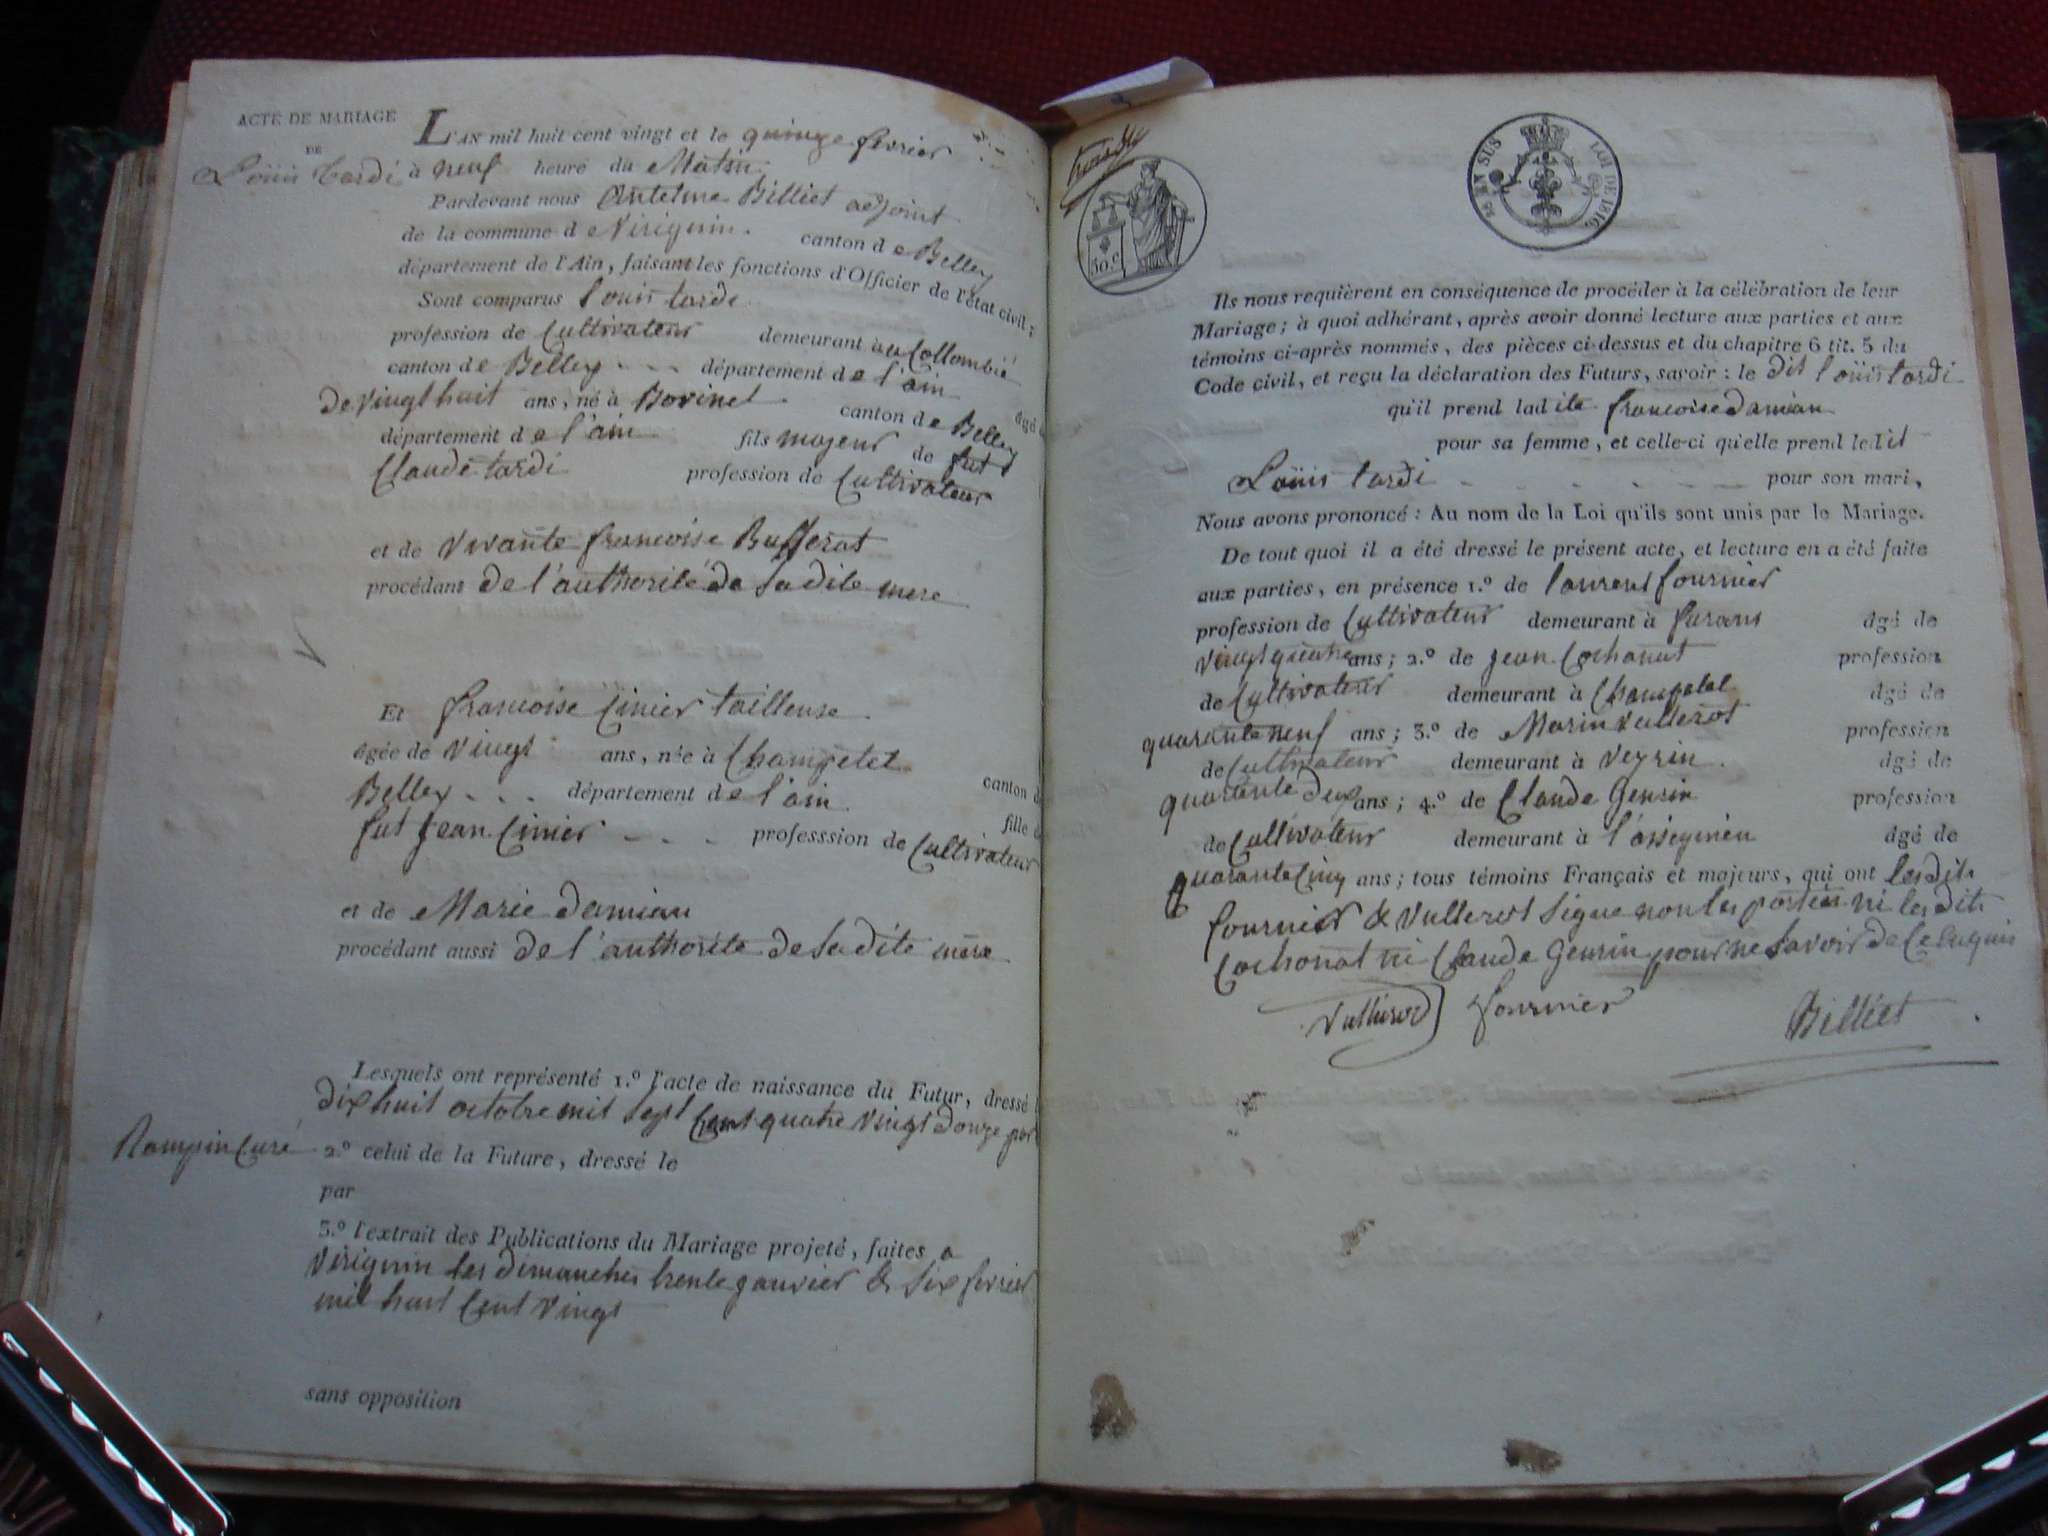 ACTE DE MARIAGE
DE
Loüis tardi
L'AN mil huit cent vingt et le quinze fevrier
à neuf heure du Matin
Pardevant nous Antelme Billiet adjoint
de la commune de Virignin. canton de Belley
département de l'Ain, faisant les fonctions d'Officier de l'état civil;
Sont comparus louis tardi
profession de Cultivateur demeurant à au Collombié
canton de Belley - - - département de l'ain âgé
de vingt huit ans, né à Borinet. canton de Belley
département de l'ain fils majeur de fut
Claude tardi profession de Cultivateur
et de vivante francoise Bufferat
procédant de l'authorité de sa dite mere
Et francoise Cinier tailleuse
âgée de vingt ans, née à Champetel canton de
Belley - - - département de l'ain fille
fut Jean Cinier - - - professsion de Cultivateur
et de Marie damian
procédant aussi de l'authorite de sa dite mere
Lesquels ont représenté 1.º l'acte de naissance du Futur, dressé
dix huit octobre mil sept Cent quatre vingt douze par
Rampin Curé
2.º celui de la Future, dressé le
par
3.º l'extrait des Publications du Mariage projeté, faites a
virignin les dimanches trente janvier & six fevrier
mil huit Cent vingt
sans opposition
3
50 c.
EN SUS LOI DE 1816
Ils nous requièrent en conséquence de procéder à la célébration de leur
Mariage; à quoi adhérant, après avoir donné lecture aux parties et aux
témoins ci-après nommés, des pièces ci-dessus et du chapitre 6 tit. 5 du
Code civil, et reçu la déclaration des Futurs, savoir: le dit loüis tardi
qu'il prend ladite francoise damian
pour sa femme, et celle-ci qu'elle prend ledit
Loüis tardi - - - - - pour son mari,
Nous avons prononcé: Au nom de la Loi qu'ils sont unis par le Mariage.
De tout quoi il a été dressé le présent acte, et lecture en a été faite
aux parties, en présence 1.º de laurent fournier
profession de Cultivateur demeurant à farans âgé de
vingt quatre ans; 2.º de jean Cochonat profession
de Cultivateur demeurant à Champetel âgé de
quarante neuf ans; 3.º de Marin vullerot profession
de Cultivateur demeurant à veyrin. âgé de
quarante deux ans; 4.º de Claude Genrin profession
de Cultivateur demeurant à l'assignieu âgé de
quarante Cinq ans; tous témoins Français et majeurs, qui ont les dits
fournier & vullerot signe non les parties ni les dits
Cochonat ni Claude Genrin pour ne savoir de Ce enquis
Vullierod fournier Billiet